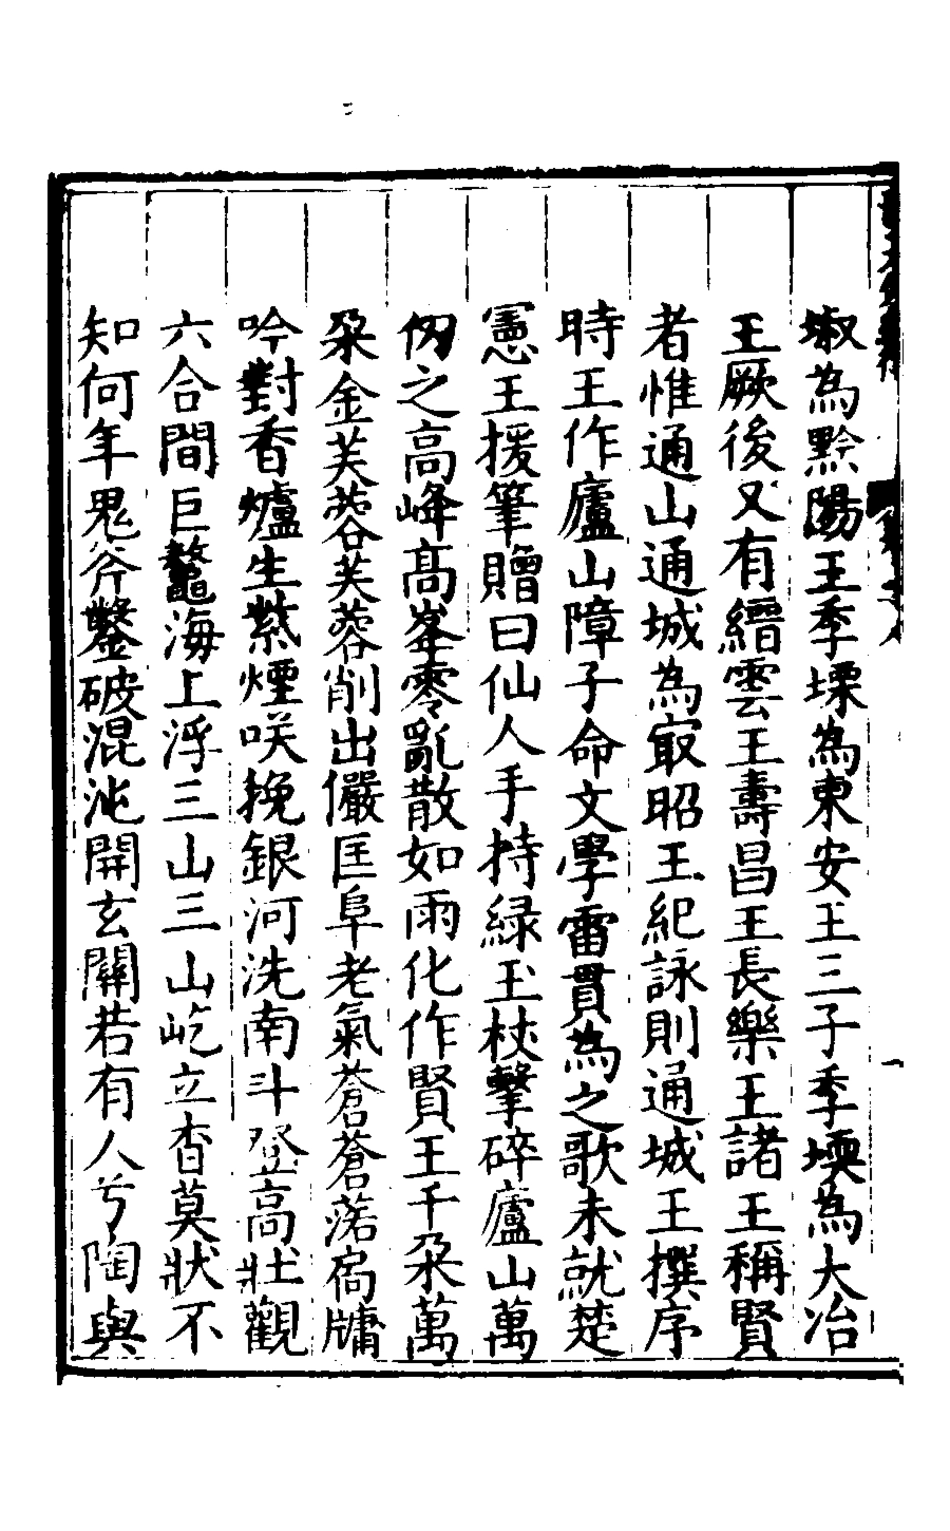 埱為黔陽王季堙為東安王三子季堧為大冶
王厥後又有縉雲王壽昌王長樂王諸王稱賢
者惟通山通城為㝡昭王紀詠則通城王撰序
時王作廬山障子命文學雷貫為之歌未就楚
憲王援筆贈曰仙人手持緑玉杖擊碎廬山萬
仞之高峰高峯零亂散如雨化作賢王千朶萬
朶金芙蓉芙蓉削出儼匡阜老氣蒼蒼落扄牗
吟對香爐生紫煙咲挽銀河洗南斗登高壯觀
六合間巨鼇海上浮三山三山屹立杳莫狀不
知何年鬼斧鑿破混沌開玄關若有人兮陶與